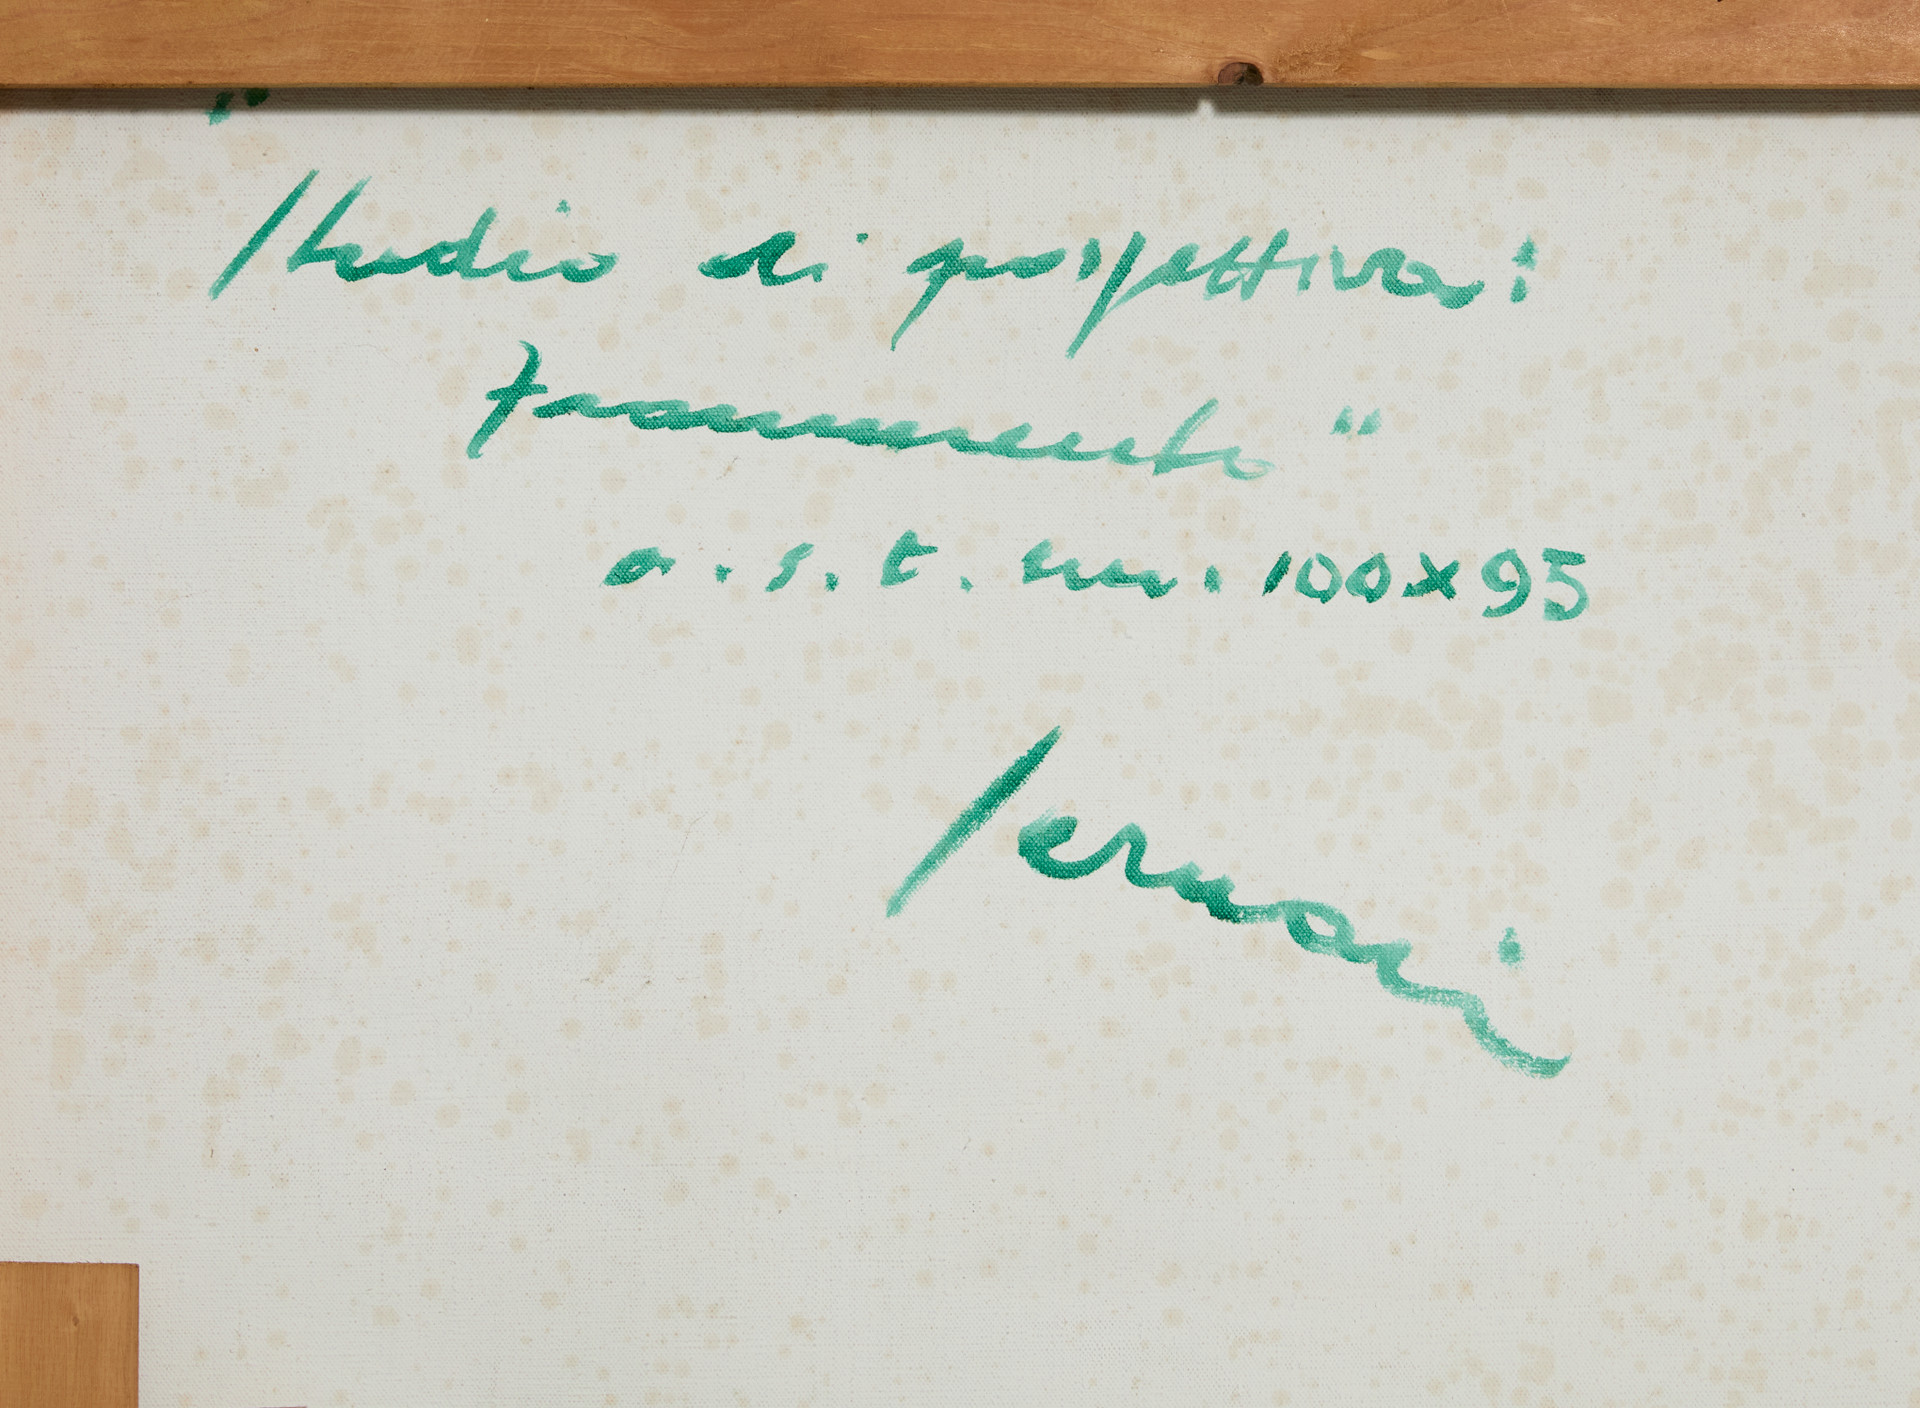 "Studio di prospettiva:
frammento"
o. s. t. cm. 100x95
Sernari